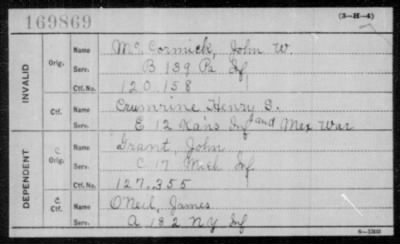 169869
(3-H-4)
INVALID
Orig.
Name McCormick, John W.
Serv. B 139 Pa Inf
Ctf. No. 120,158
Ctf.
Name Crumrine Henry S.
Serv. E 12 Kans Inf and Mex War
DEPENDENT
C. Orig.
Name Grant, John
Serv. C 17 Mich Inf
Ctf. No. 127,355
C Ctf.
Name ONeil, James
Serv. A 182 N Y Inf